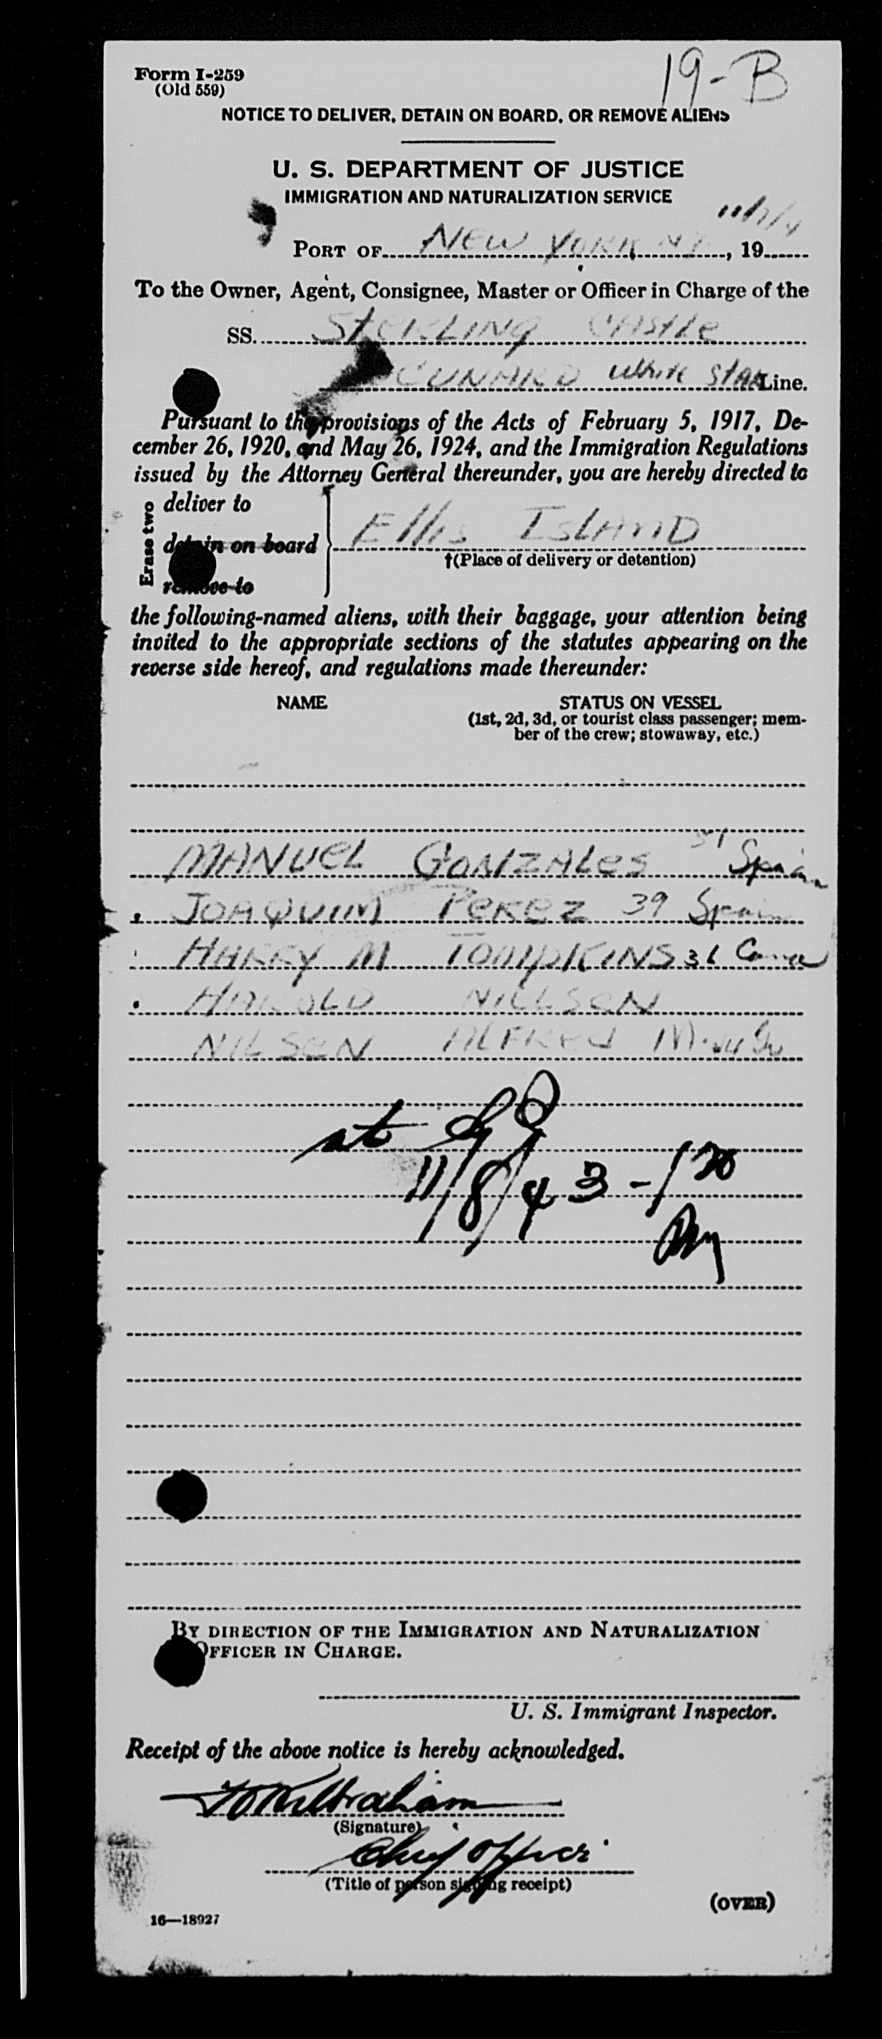 Form I-259
(Old 559)
19-B
NOTICE TO DELIVER, DETAIN ON BOARD, OR REMOVE ALIENS
U. S. DEPARTMENT OF JUSTICE
IMMIGRATION AND NATURALIZATION SERVICE
PORT OF NEW YORK NY, 19
To the Owner, Agent, Consignee, Master or Officer in Charge of the
SS. SterLING CAstle
CUNARD White STAR Line.
Pursuant to the provisions of the Acts of February 5, 1917, De-
cember 26, 1920, and May 26, 1924, and the Immigration Regulations
issued by the Attorney General thereunder, you are hereby directed to
Erase two
deliver to
detain on board
remove to
Ellis IsLAND
†(Place of delivery or detention)
the following-named aliens, with their baggage, your attention being
invited to the appropriate sections of the statutes appearing on the
reverse side hereof, and regulations made thereunder:
NAME STATUS ON VESSEL
(1st, 2d, 3d, or tourist class passenger; mem-
ber of the crew; stowaway, etc.)
MANUEL GONZALES Spain
JOAQUIM PEREZ 39 Spain
HARRY M TOMPKINS
HAROLD NILLSON
NILSEN ALFRED
at
11/8/43 - 1 20
Receipt of the above notice is hereby acknowledged.
By direction of the Immigration and Naturalization
Officer in Charge.
U. S. Immigrant Inspector.
(Signature)
Chief Officer
(Title of person signing receipt)
(OVER)
16—18927